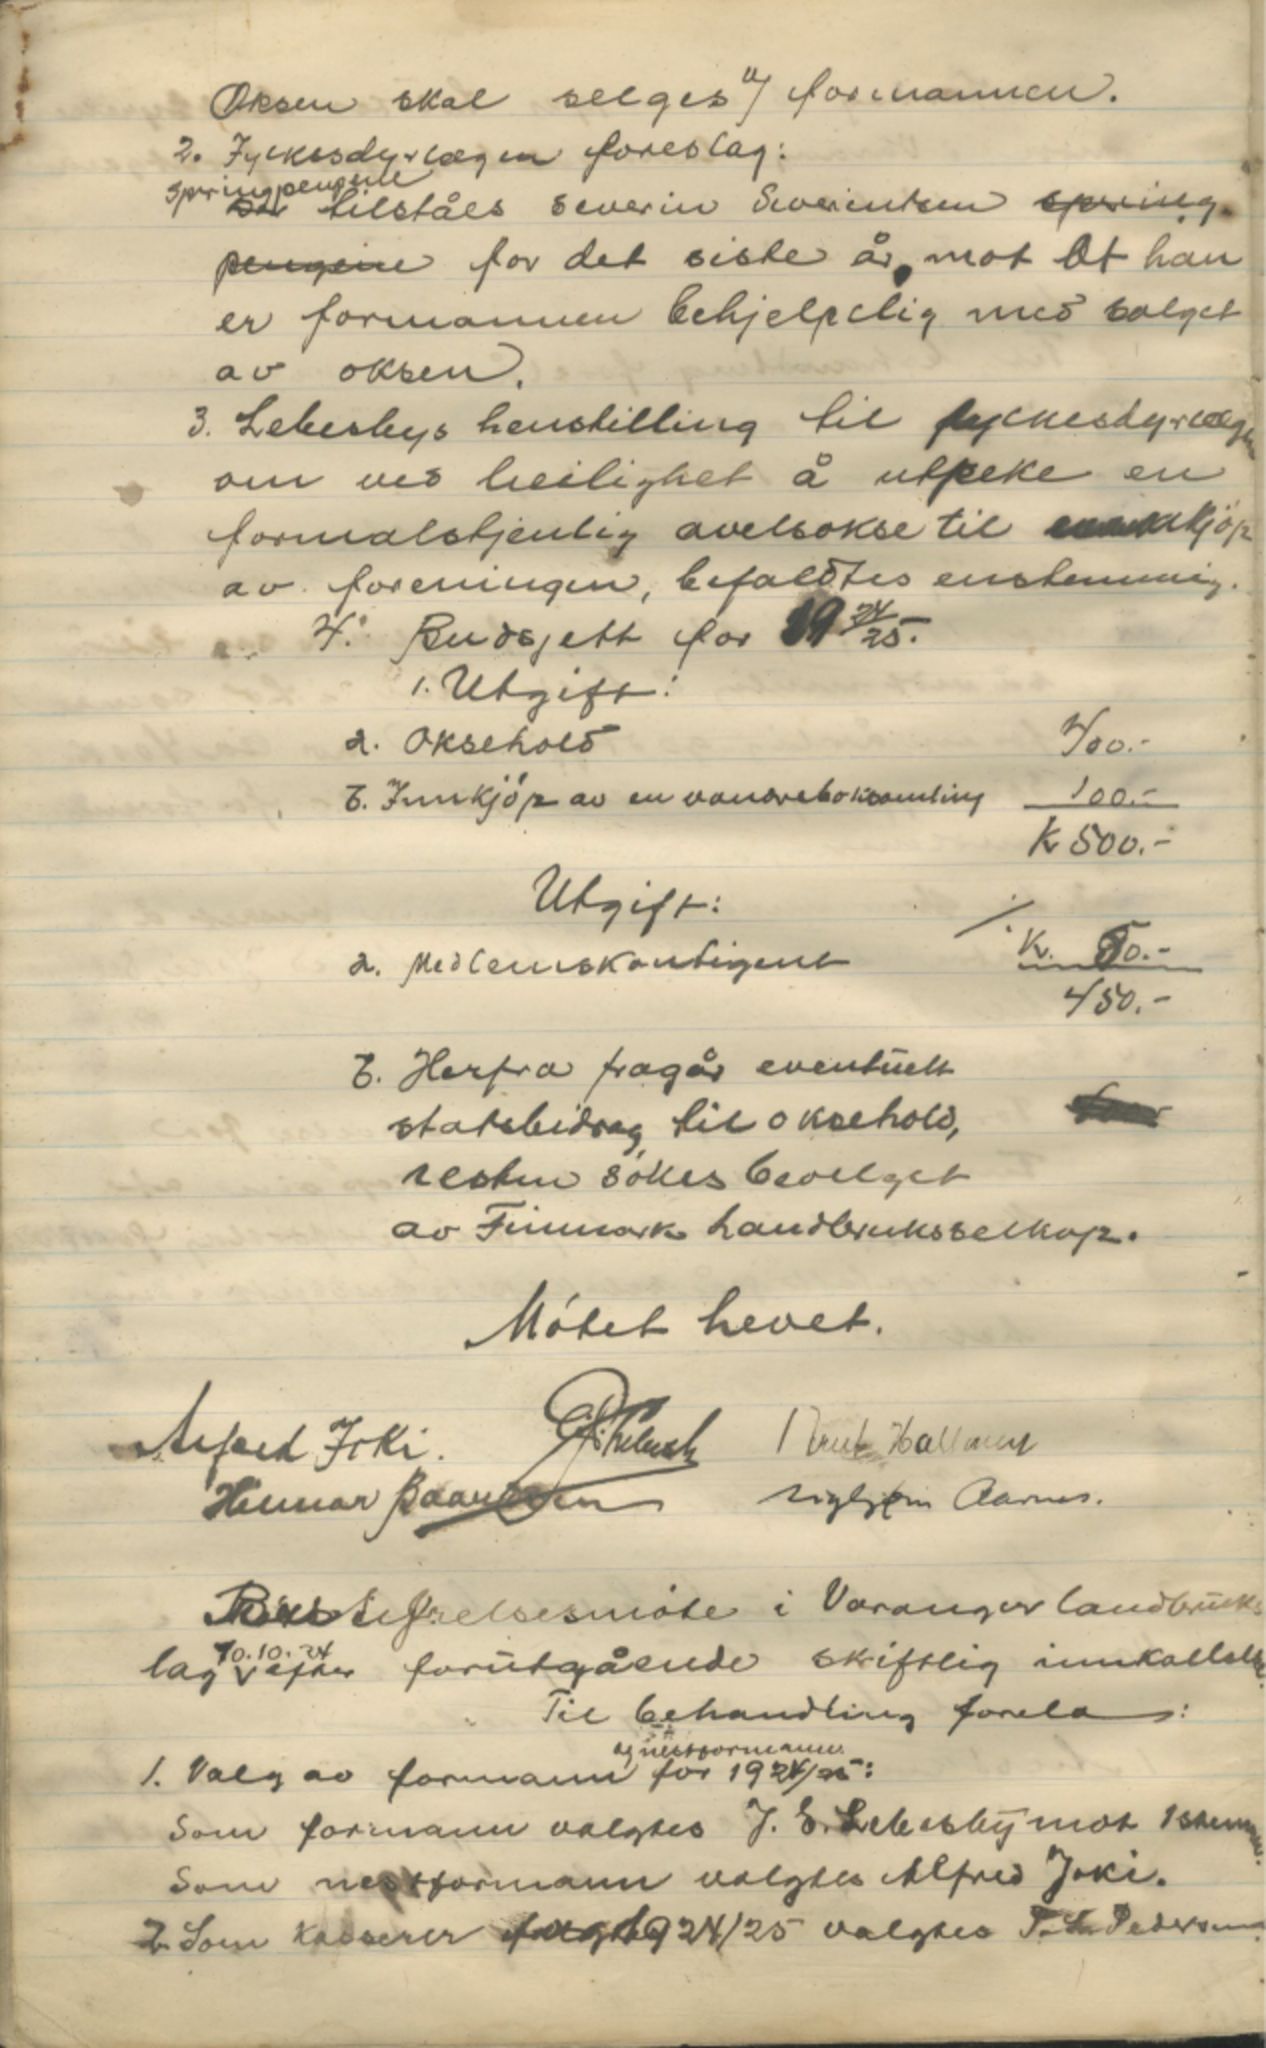 Oksen skal selges a/ formannen.
2. Fylkesdyrlægen foreslag:
springpengene
tilståes Severin Severintsen spring
pengene for det siste år, mot at han
er formannen behjelpelig med salget
av oksen.
3. Lebesbys henstilling til fylkesdyrlægen
om ved leilighet å utpeke en
formalstjenlig avelsokse til innkjöp
av foreningen, befaldtes enstemmig.
4. Budsjett for 1924/25.
1. Utgift:
a. Oksehold 400.-
b. Innkjöp av en vandreboksamling 100.-
Kr 500.-
Utgift:
a. Medlemskontigent ./. Kr. 50.-
450.-
b. Herfra fragår eventuelt
statsbidrag til oksehold,
resten sökes bevelget
av Finmark landbruksselkap.
Mötet hevet.
Alfred Joki. Knut Hallonen
Hennar Aarnes.
Styrelsesmöte i Varanger landbruks
lag 10.10.24 efter forutgående skiftlig innkallelse.
Til behandling forela:
og nestformann
1. Valg av formann for 1924/25:
Som formann valgtes J. E. Lebesby mot 1 stemme.
Som nestformann valgtes Alfred Joki.
2. Som kasserer 1924/25 valgtes Pedersen